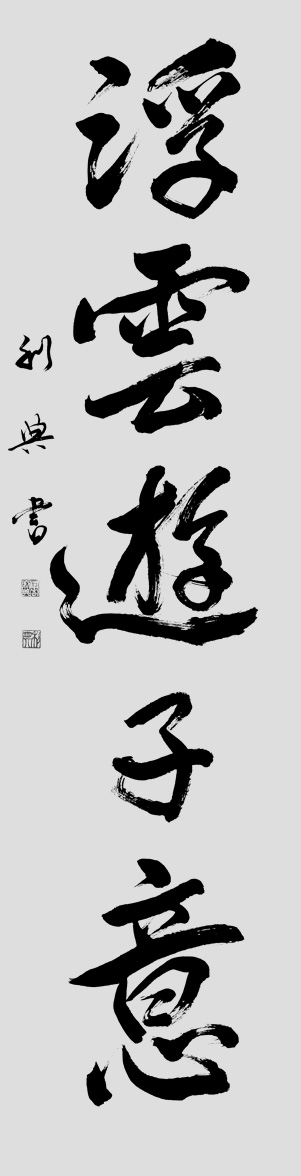 浮雲遊子意
利典書